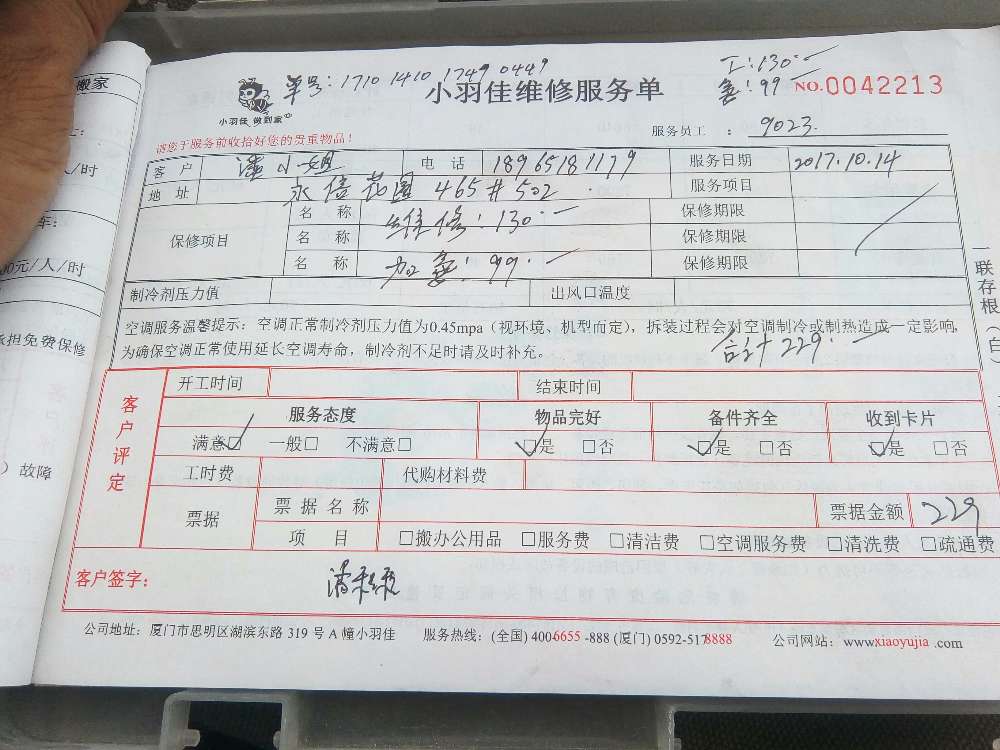 搬家
单号：1710 1410 1749 0449
工：130.—
氟：99
小羽佳 做到家
小羽佳维修服务单
NO.0042213
请您于服务前收拾好您的贵重物品！
服务员工 ： 9023.
客 户 潘小姐 电 话 18965181179 服务日期 2017.10.14
地 址 永信花园 465#502. 服务项目
保修项目
名 称 维修：130.— 保修期限
名 称 保修期限
名 称 加氟：99.— 保修期限
制冷剂压力值 出风口温度
空调服务温馨提示：空调正常制冷剂压力值为0.45mpa（视环境、机型而定），拆装过程会对空调制冷或制热造成一定影响，
为确保空调正常使用延长空调寿命，制冷剂不足时请及时补充。
合计 229.—
客户评定
开工时间 结束时间
服务态度 物品完好 备件齐全 收到卡片
满意☑ 一般□ 不满意□ ☑是 □否 ☑是 □否 ☑是 □否
工时费 代购材料费
票据 票 据 名 称 票据金额 229
项 目 □搬办公用品 □服务费 □清洁费 □空调服务费 □清洗费 □疏通费
客户签字：
公司地址：厦门市思明区湖滨东路 319 号 A 幢小羽佳 服务热线：(全国) 400-6655-888 (厦门) 0592-5178888 公司网站：www.xiaoyujia.com
一联存根（白）
/时
车：
00元/人/时
承担免费保修
）故障